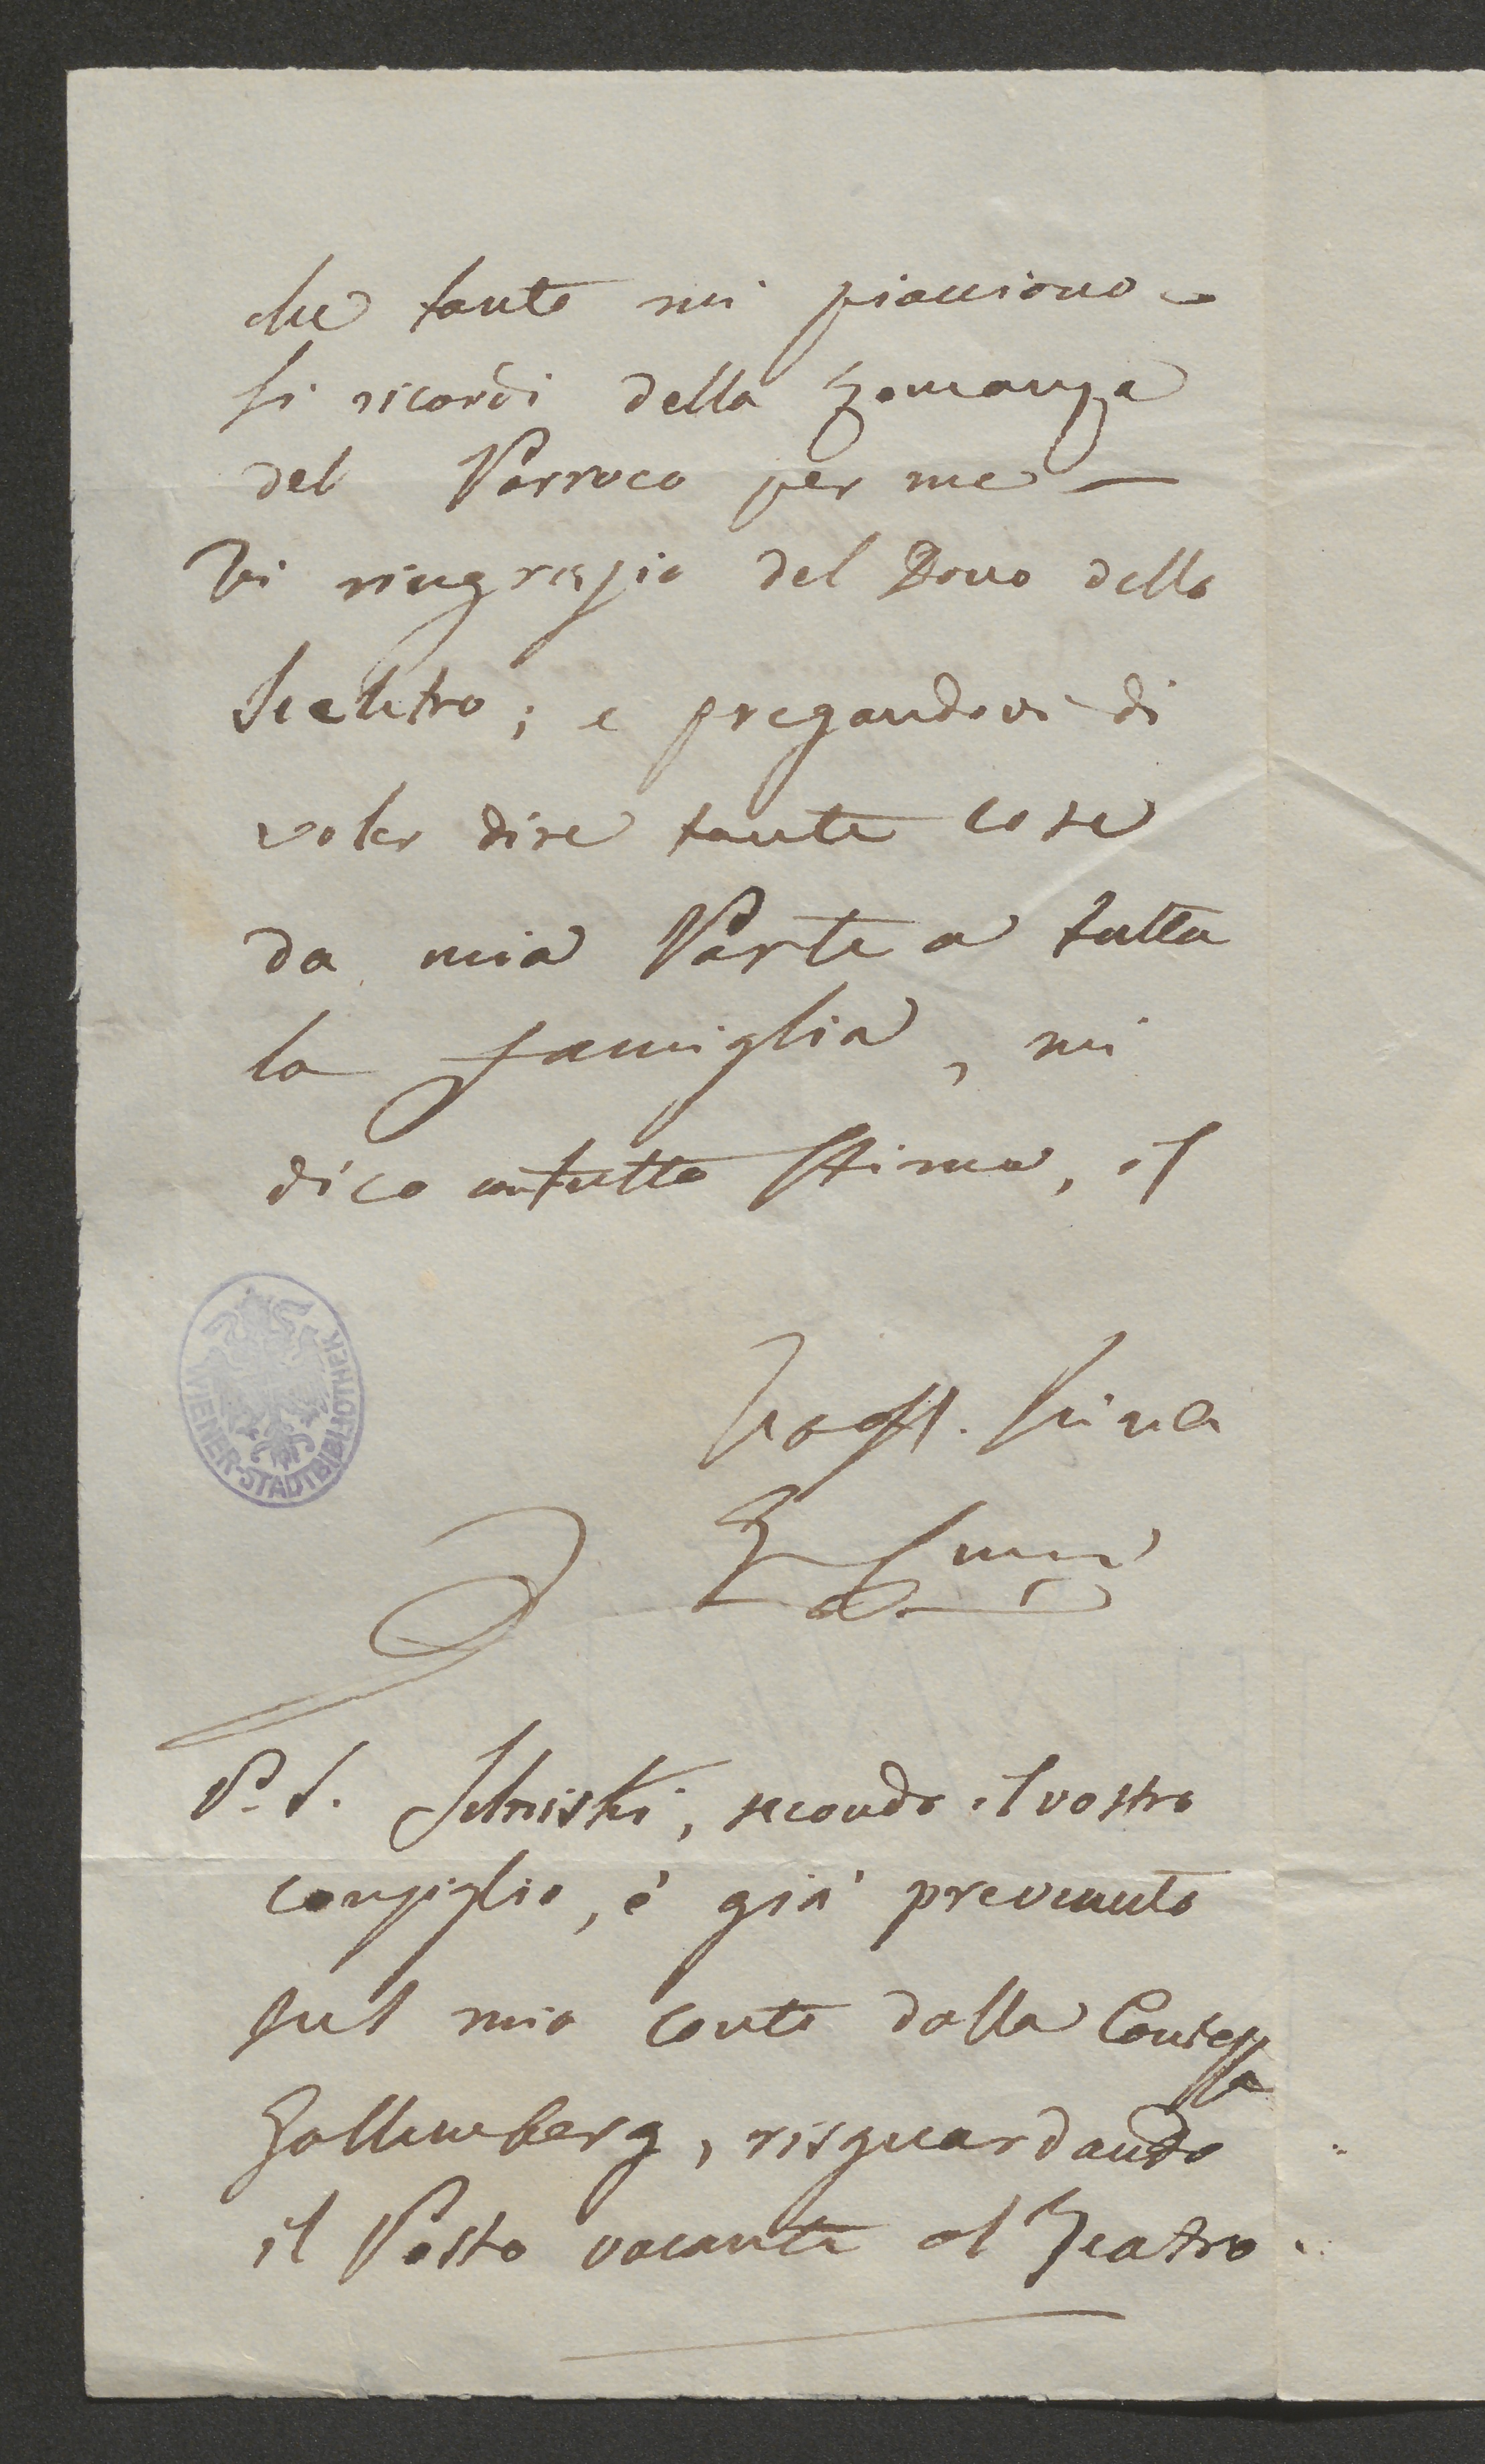 che tanto mi piacciono –
si ricordi della Romanza
del Parroco per me —
Vi ringrazio del Dono dello
Scheletro; e pregandovi di
voler dire tante cose
da mia Parte a tutta
la famiglia, mi
dico con tutta stima, il
P. S. secondo il vostro
consiglio, è già prevenuto
sul mio conto dalla Contessa
Gallemberg, risguardando
il Posto vacante al Teatro.
WIENER-STADTBIBLIOTHEK